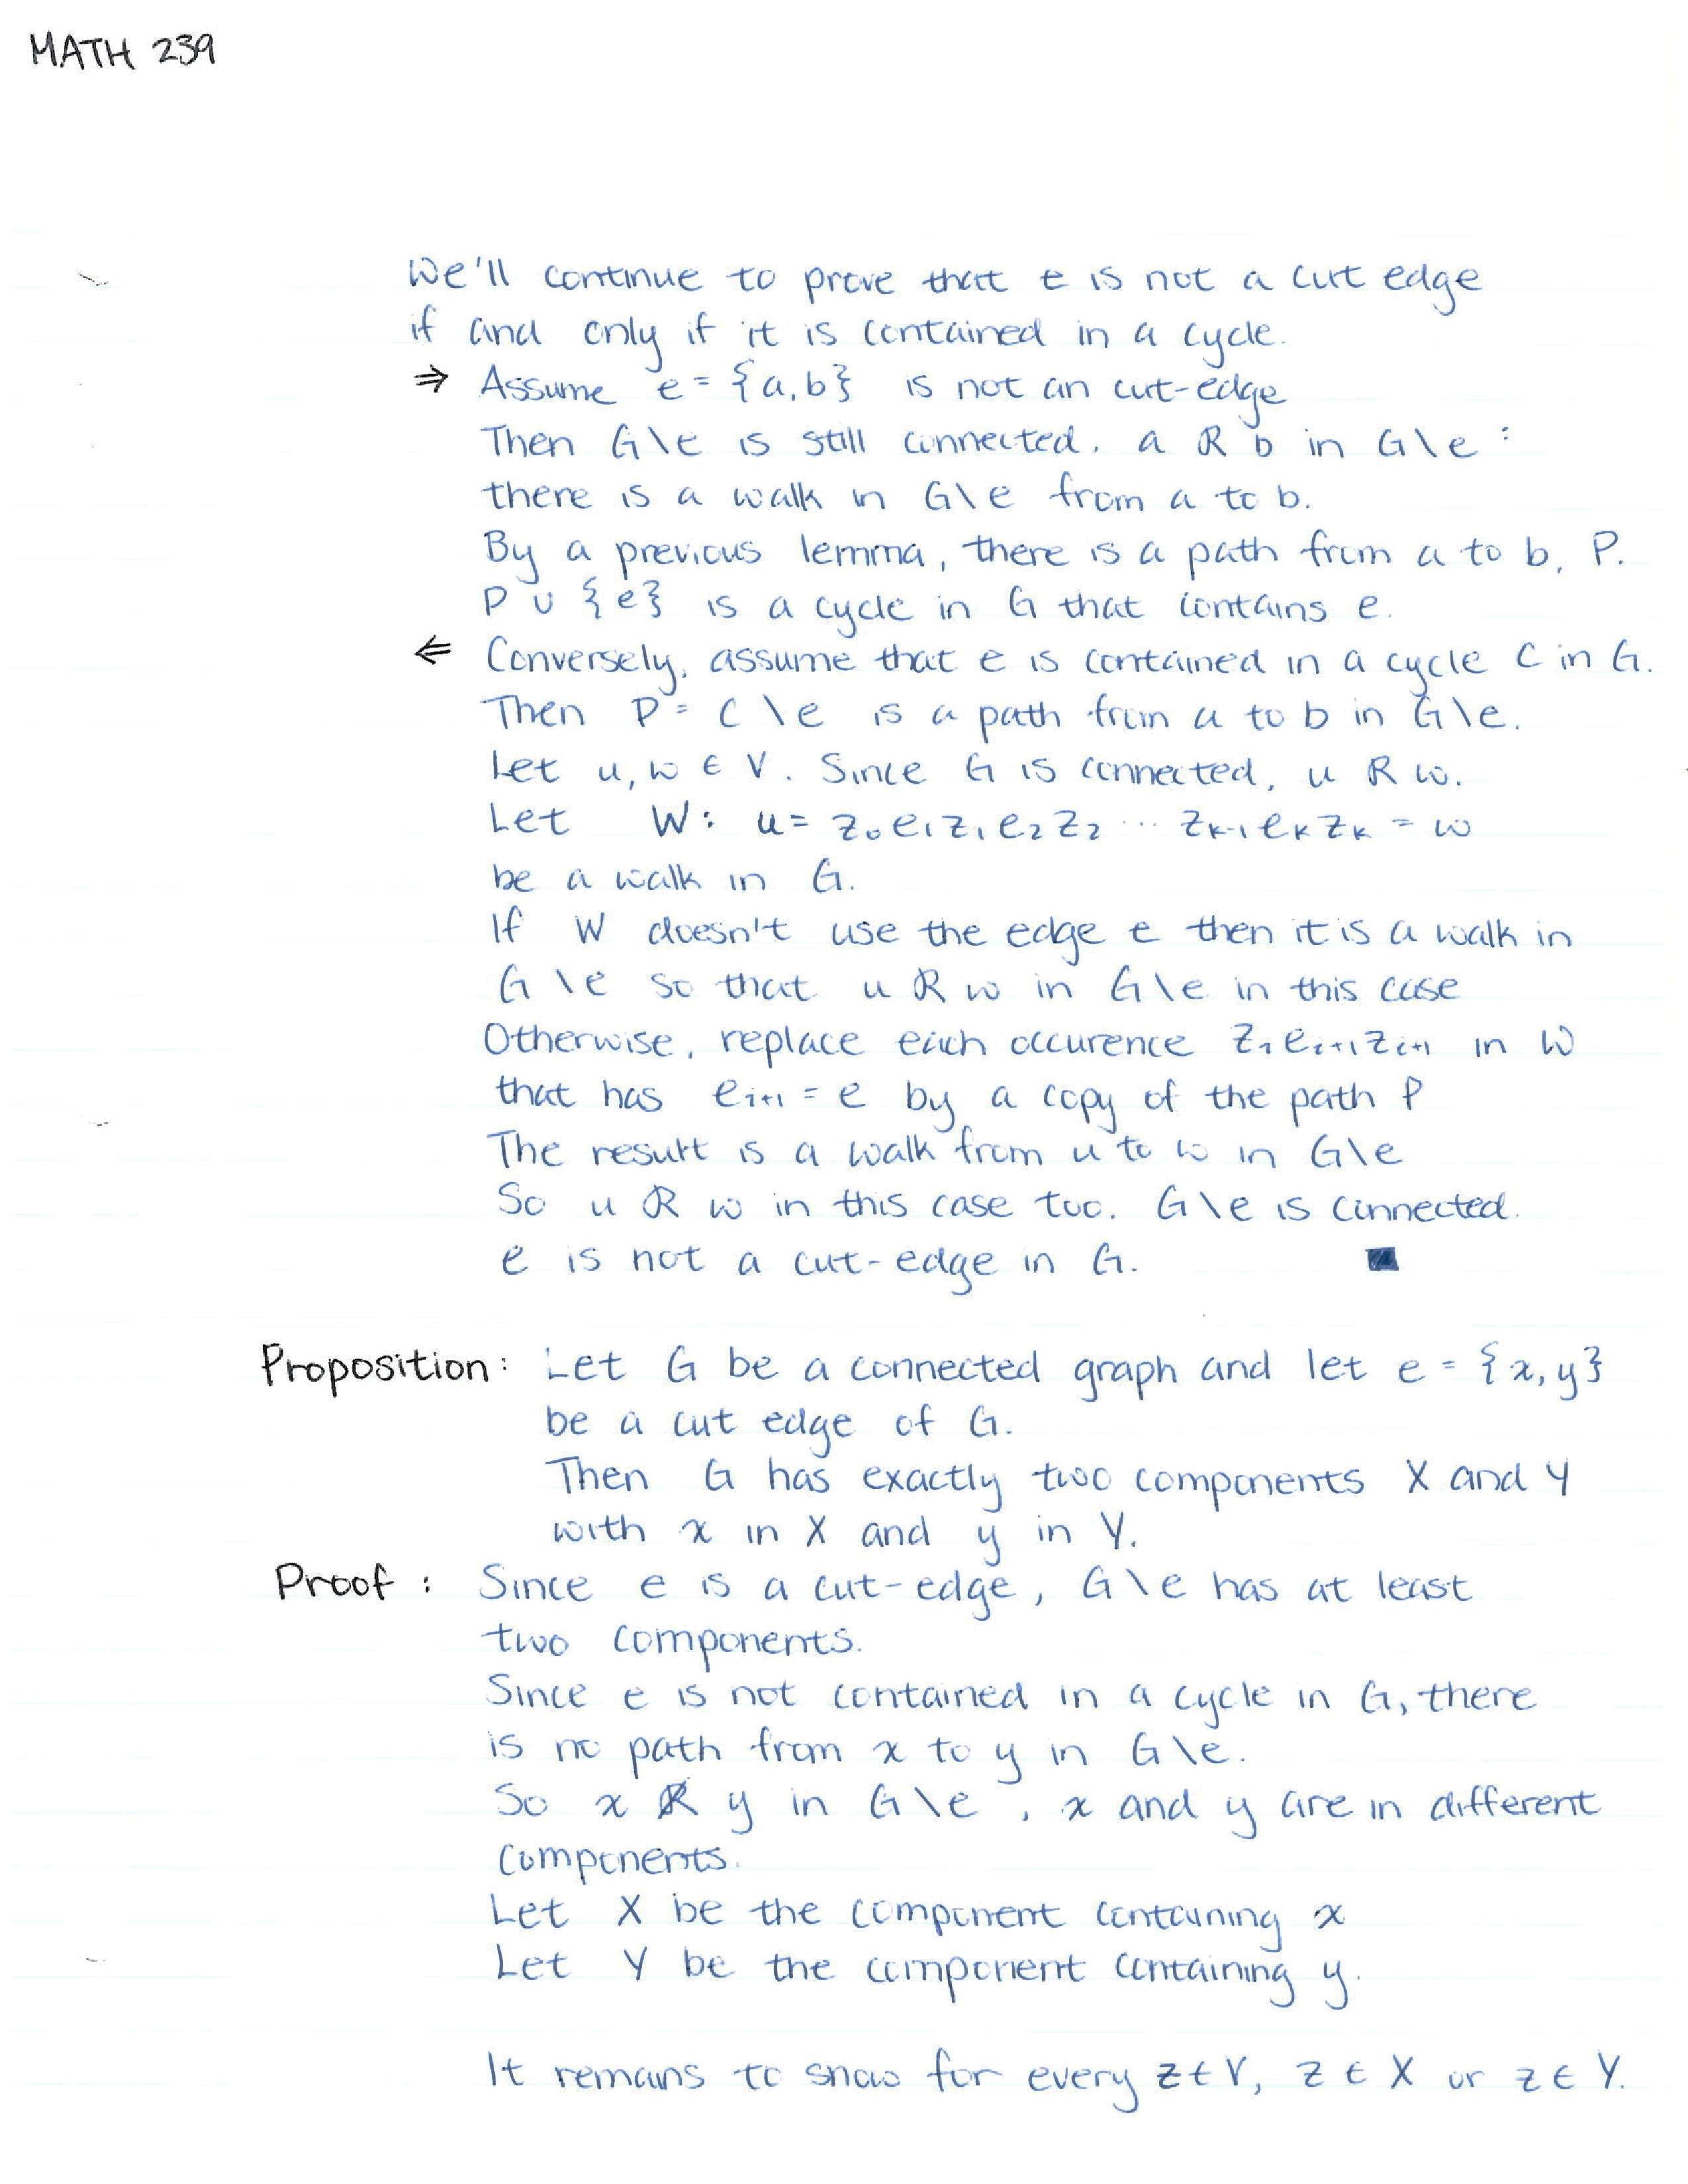 MATH 239
We'll continue to prove that e is not a cut edge
if and only if it is contained in a cycle.
⇒ Assume e = {a, b} is not an cut-edge
Then G\e is still connected. a R b in G\e :
there is a walk in G\e from a to b.
By a previous lemma, there is a path from a to b, P.
P ∪ {e} is a cycle in G that contains e.
⇐ Conversely, assume that e is contained in a cycle C in G.
Then P = C \ e is a path from a to b in G\e.
Let u, w ∈ V. Since G is connected, u R w.
Let W: u = z₀e₁z₁e₂z₂ ... zₖ₋₁eₖzₖ = w
be a walk in G.
If W doesn't use the edge e then it is a walk in
G \e so that u R w in G\e in this case
Otherwise, replace each occurence zᵢeᵢ₊₁zᵢ₊₁ in W
that has eᵢ₊₁ = e by a copy of the path P
The result is a walk from u to w in G\e
So u R w in this case too. G\e is connected.
e is not a cut-edge in G. ■
Proposition: Let G be a connected graph and let e = {x, y}
be a cut edge of G.
Then G has exactly two components X and Y
with x in X and y in Y.
Proof : Since e is a cut-edge, G\e has at least
two components.
Since e is not contained in a cycle in G, there
is no path from x to y in G\e.
So x R̸ y in G\e , x and y are in different
components.
Let X be the component containing x
Let Y be the component containing y.
It remains to show for every z ∈ V, z ∈ X or z ∈ Y.